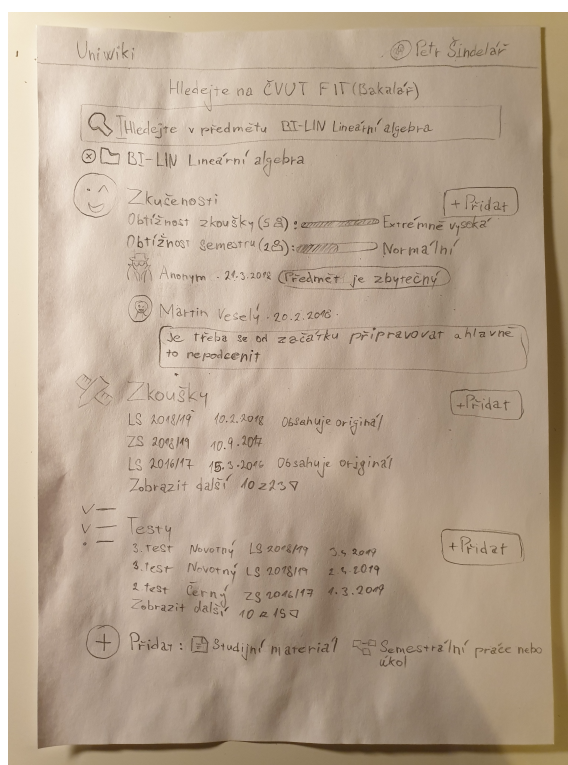 Uniwiki Petr Šindelář
Hledejte na ČVUT FIT (Bakalář)
Hledejte v předmětu BI-LIN Lineární algebra
BI-LIN Lineární algebra
Zkučenosti + Přidat
Obtížnost zkoušky (5): Extrémně vysoká
Obtížnost semestru (2): Normální
Anonym . 21.3.2018 Předmět je zbytečný
Martin Veselý . 20.2.2018.
Je třeba se od začátku připravovat a hlavně
to nepodcenit
Zkoušky + Přidat
LS 2018/19 10.2.2018 Obsahuje originál
ZS 2018/19 10.9.2017
LS 2016/17 15.3.2016 Obsahuje originál
Zobrazit další 10 z 23
Testy + Přidat
3. test Novotný LS 2018/19 2019
3. test Novotný LS 2018/19 2019
2 test Černý ZS 2016/17 1.3.2019
Zobrazit další 10 z 15
+ Přidat: Studijní material Semestrální práce nebo
úkol